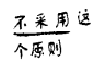 不采用这
个原则